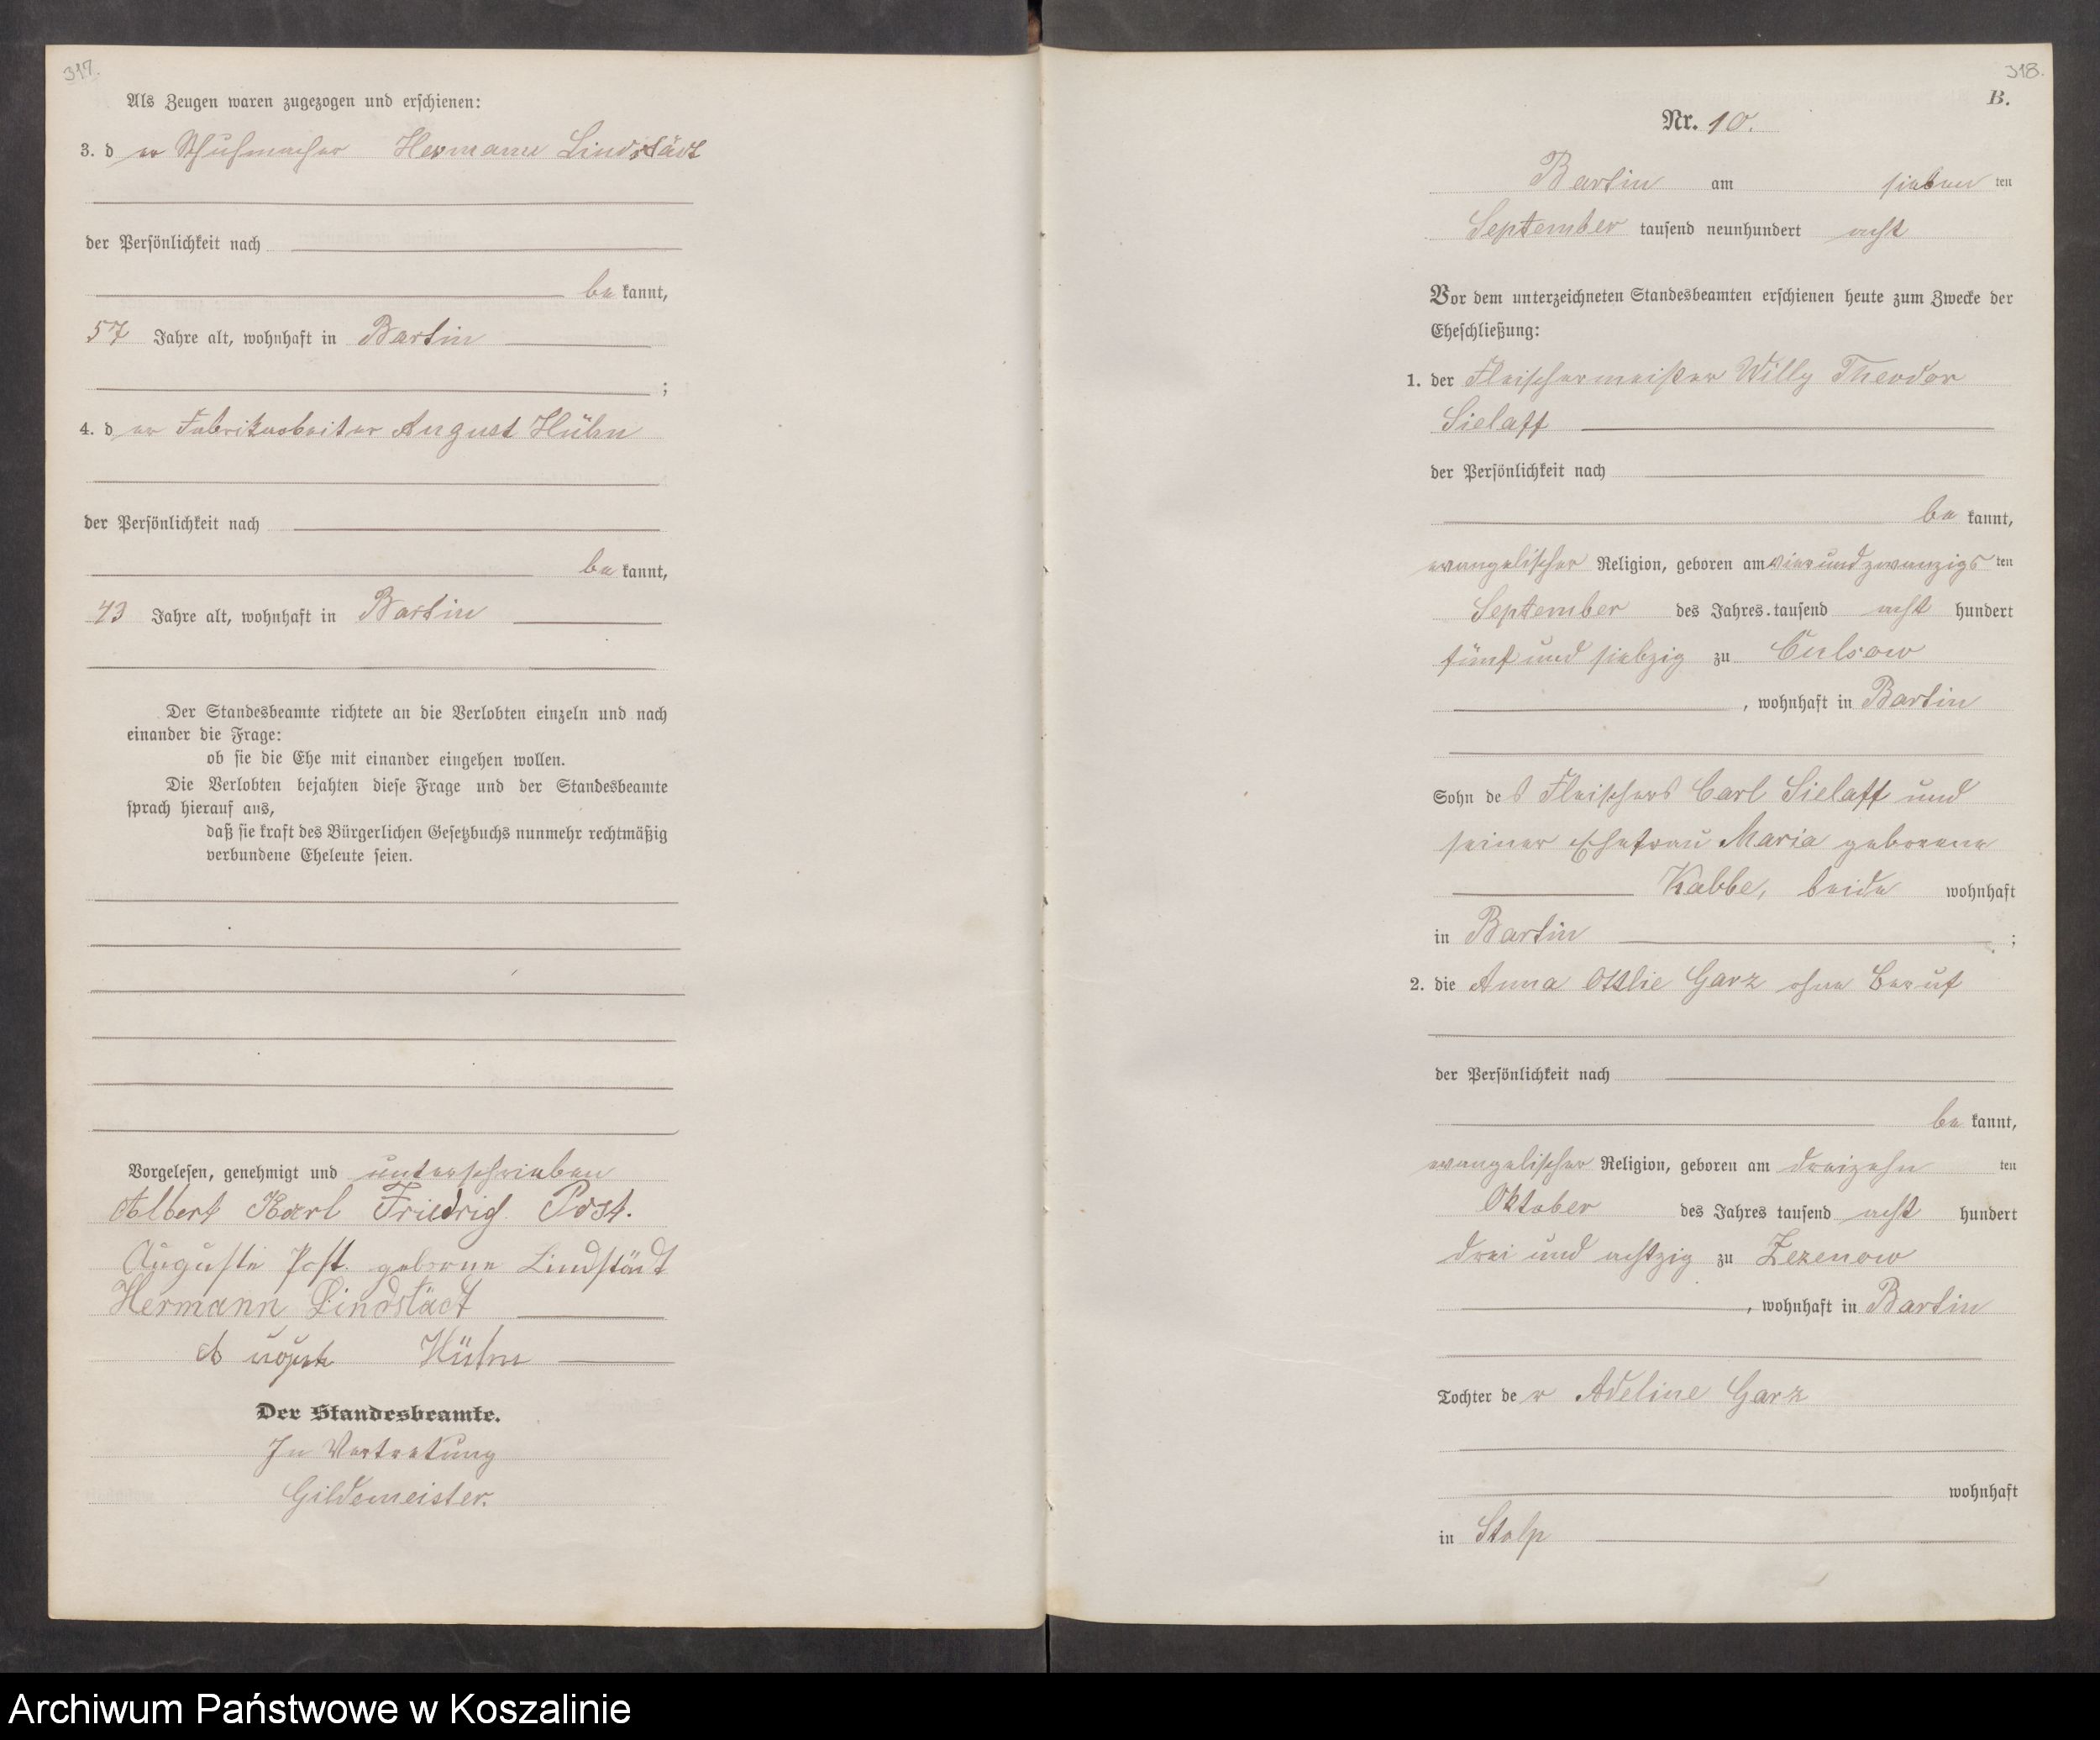 317.
Als Zeugen waren zugezogen und erschienen:
3. d er Schuhmacher Hermann Lindstädt
der Persönlichkeit nach
be kannt,
57 Jahre alt, wohnhaft in Bartin
;
4. d er Fabrikarbeiter August Hühn
der Persönlichkeit nach
be kannt,
43 Jahre alt, wohnhaft in Bartin
Der Standesbeamte richtete an die Verlobten einzeln und nach
einander die Frage:
ob sie die Ehe mit einander eingehen wollen.
Die Verlobten bejahten diese Frage und der Standesbeamte
sprach hierauf aus,
daß sie kraft des Bürgerlichen Gesetzbuchs nunmehr rechtmäßig
verbundene Eheleute seien.
Vorgelesen, genehmigt und unterschrieben
Albert Karl Friedrich Post.
Auguste Post geborne Lindstädt
Hermann Lindstädt
August Hühn
Der Standesbeamte.
In Vertretung
Gildemeister.
318.
B.
Nr. 10.
Bartin am sieben ten
September tausend neunhundert acht
Vor dem unterzeichneten Standesbeamten erschienen heute zum Zwecke der
Eheschließung:
1. der Fleischermeister Willy Theodor
Sielaff
der Persönlichkeit nach
be kannt,
evangelischer Religion, geboren am vierundzwanzigs ten
September des Jahres tausend acht hundert
fünf und siebzig zu Culsow
, wohnhaft in Bartin
Sohn de s Fleischers Carl Sielaff und
seiner Ehefrau Maria geborene
Kabbe, beide wohnhaft
in Bartin ;
2. die Anna Ottlie Garz ohne Beruf
der Persönlichkeit nach
be kannt,
evangelischer Religion, geboren am dreizehn ten
Oktober des Jahres tausend acht hundert
drei und achtzig zu Zezenow
, wohnhaft in Bartin
Tochter de r Adeline Garz
wohnhaft
in Stolp
Archiwum Państwowe w Koszalinie